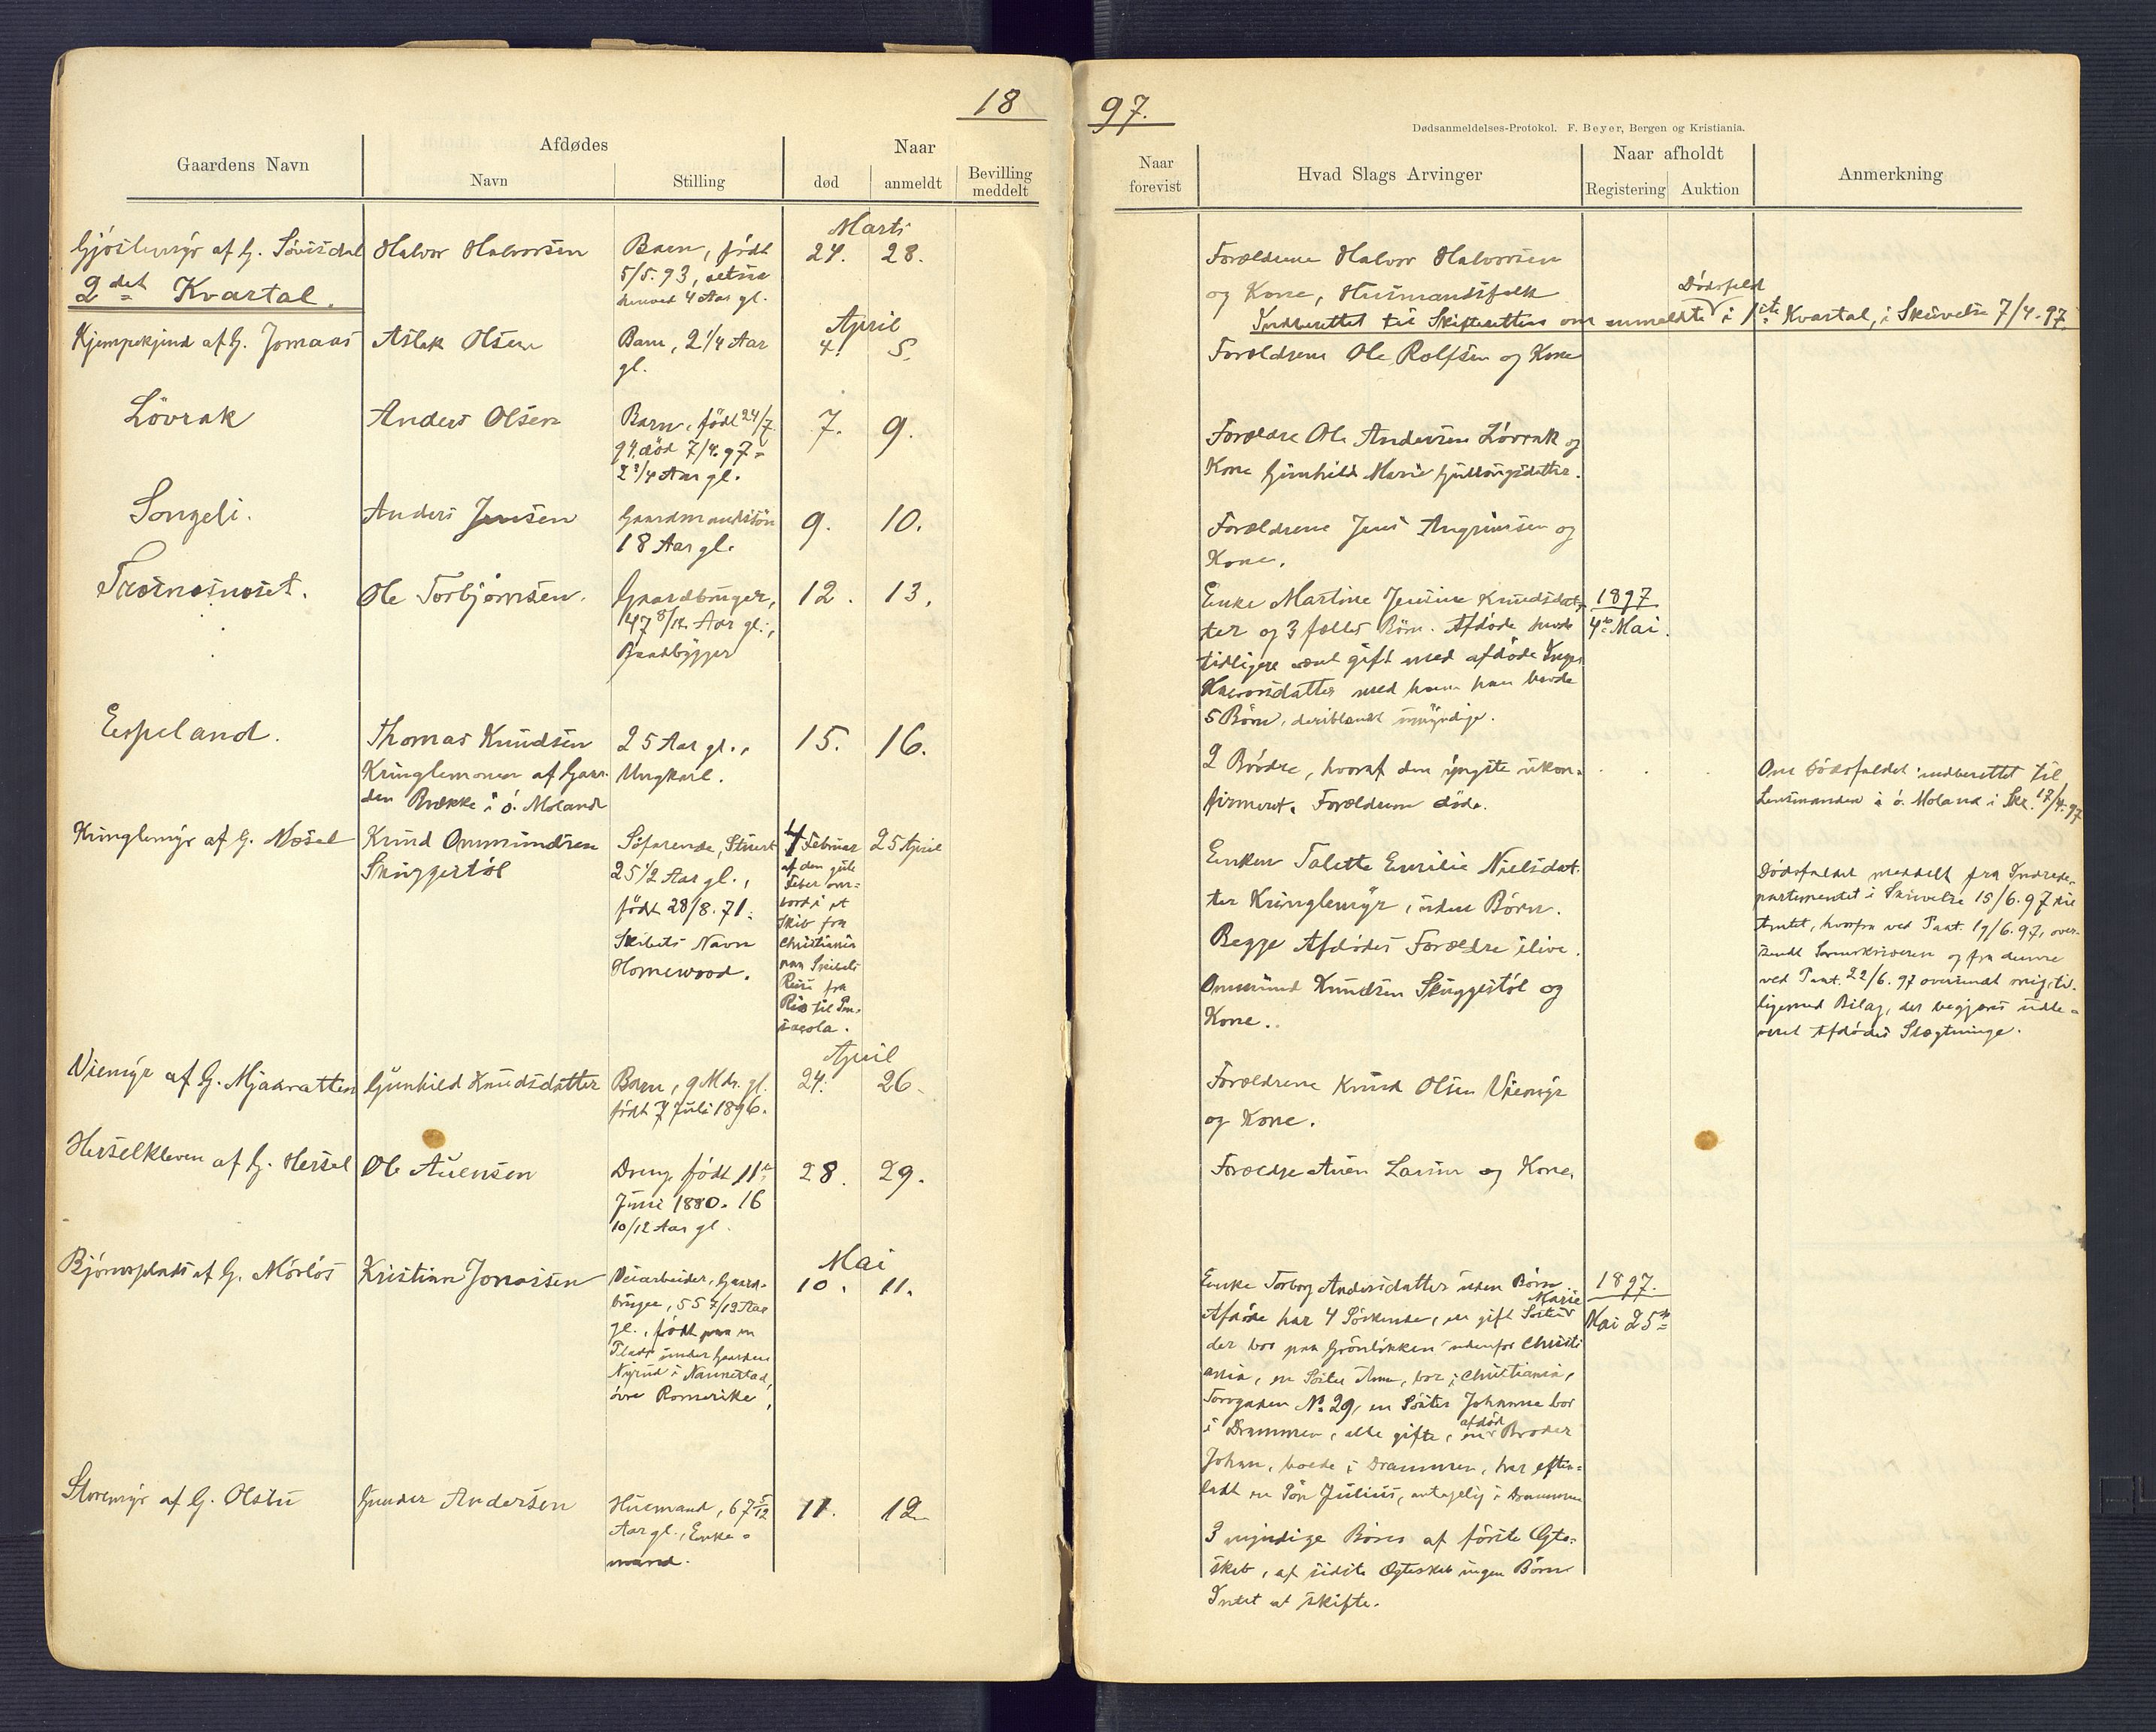 18
97.
Dødsanmeldelses-Protokol. F. Beyer, Bergen og Kristiania.
Gaardens Navn
Afdødes
Navn
Stilling
Naar
død
anmeldt
Bevilling
meddelt
Naar
forevist
Hvad Slags Arvinger
Naar afholdt
Registering
Auktion
Anmerkning
Marts
af G.
Halvor Halvorsen
Barn, født
5/5. 93,
4 Aar gl.
24.
28.
Forældrene Halvor Halvorsen
og Kone, Husmandsfolk
2det Kvartal.
Dødsfald
Indberettet til Skifteretten om anmeldte i 1ste Kvartal, i Skrivelse 7/4. 97.
April
Kjempekjend af G. Jomaas
Aslak Olsen
Barn, 2 1/4 Aar
gl.
4.
5.
Forældrene Ole Rolfsen og Kone
Lövrak
Anders Olsen
Barn, född 24/7
94. död 7/4. 97 =
2 3/4 Aar gl.
7.
9.
Forældre Ole Andersen Lövrak og
Kone Gunhild Marie
Songeli.
Anders Jensen
Gaardmandssön
18 Aar gl.
9.
10.
Forældrene Jens Angrimsen og
Kone.
Ole Torbjörnsen.
Gaardbruger,
47 8/12 Aar gl.,
Baadbygger
12.
13.
Enke Martine Jensine Knudsdat-
ter og 3 fælles Börn. Afdöde havde
tidligere været gift med afdöde
med hvem han havde
5 Börn, deriblandt umyndige.
1897
4de Mai.
Espeland.
Thomas Knudsen
Kringlemoen af Gaar-
den Brække i ö. Moland
25 Aar gl.,
Ungkarl.
15.
16.
2 Brödre, hvoraf den yngste ukon-
firmeret. Forældrene döde.
Om Dödsfaldet indberettet til
Lensmanden i ö. Moland i Skr. 17/4. 97
Kringlemyr af G. Næsel
Knud Ommundsen
Skuggestöl
Söfarende, Stuert
25 1/2 Aar gl.,
født 28/8. 71.
Skibets Navn
Homewood.
4 Februar
af den gule
Feber om-
bord i et
Skib fra
Christiania
paa Skibets
Reise fra
Rio til Pen-
sacola.
25 April
Enken Talette Emilie Nielsdat-
ter Kringlemyr, uden Börn.
Begge Afdödes Forældre ilive.
Ommund Knudsen Skuggestöl og
Kone.
Dødsfaldet meddelt fra Indrede-
partementet i Skrivelse 15/6. 97 til
Amtet, hvorfra ved Paat. 19/6. 97, over-
sendt Sorenskriveren og fra denne
ved Paat. 22/6. 97 oversendt mig til-
ligemed Bilag, der begjæres udle-
veret Afdödes Slægtninge.
April
Viemyr af G. Mjaavatten
Gunhild Knudsdatter
Barn, 9 Mdr. gl.
født 7 Juli 1896.
24.
26.
Forældrene Knud Olsen Viemyr
og Kone.
Herselkleven af G. Hersel
Ole Auensen
Dreng född 11te
Juni 1880. 16
10/12 Aar gl.
28.
29.
Forældre Auen Larsen og Kone.
Mai
Bjönnsplads af G. Mörlös
Kristian Jonassen
Veiarbeider, Gaard-
bruger, 55 7/12 Aar
gl., født paa en
Plads under Gaarden
Nyrud i Nannestad,
övre Romerike,
10.
11.
Enke Torborg Andersdatter uden Börn
Marie
Afdöde har 4 Söskende, en gift Söster
der bor paa Grönlökken udenfor Christi
ania, en Söster Anne, bor i Christiania,
Torvgaden No. 29, en Söster Johanne bor
afdöd
i Drammen, alle gifte, en Broder
Johan, boede i Drammen, har efter-
ladt en Sön Julius, antagelig i Drammen
1897.
Mai 25de
Storemyr af G. Olstu
Gunder Andersen
Husmand, 67 5/12
Aar gl., Enke-
mand.
11.
12
3 myndige Börn af förste Ægte-
skab, af sidste Ægteskab ingen Börn
Intet at skifte.